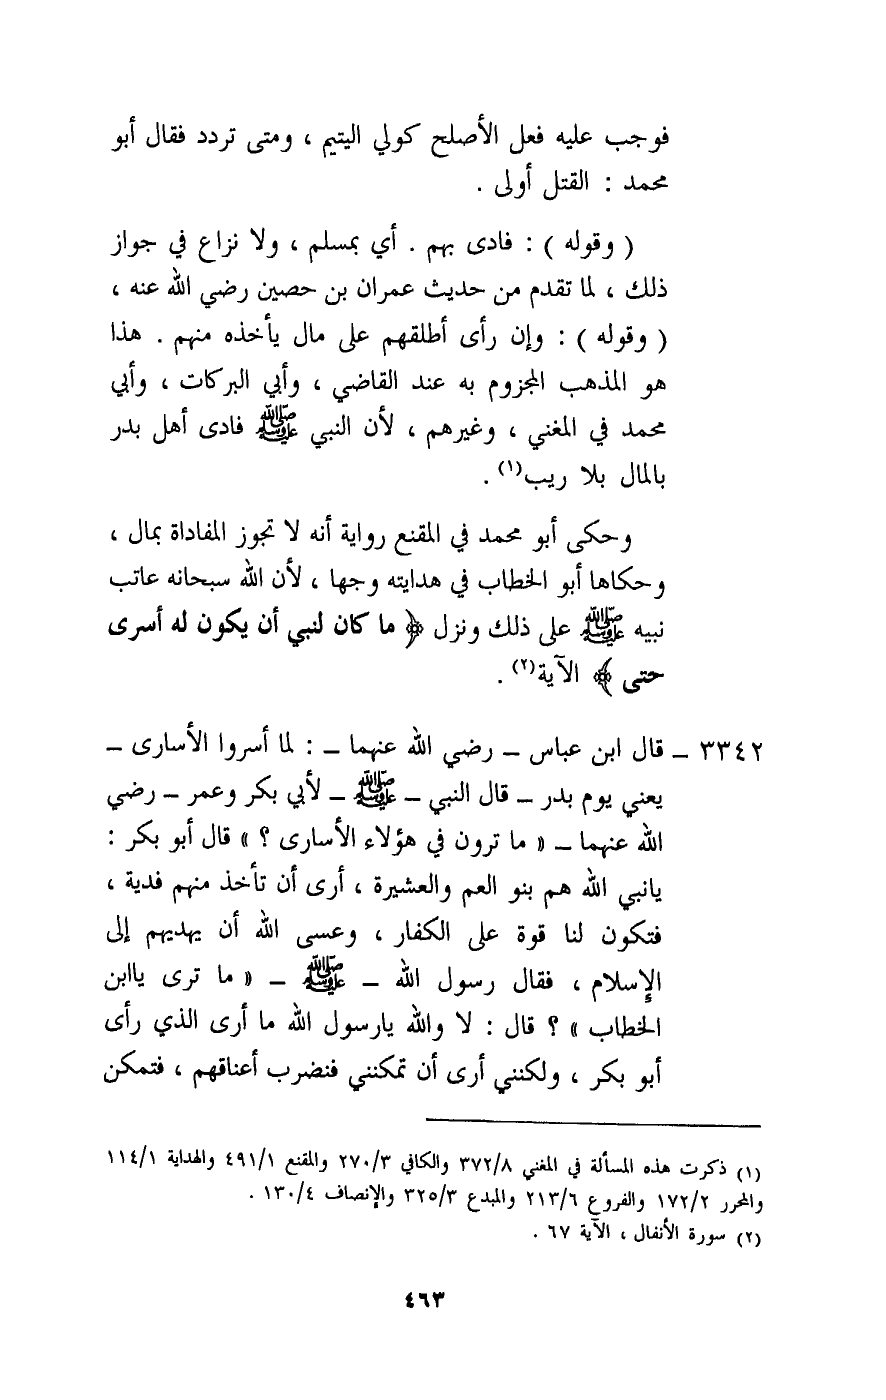 فوجب عليه فعل الأصلح كولي اليتيم ، ومتى تردد فقال أبو
محمد : القتل أولى .
( وقوله ) : فادى بهم . أي بمسلم ، ولا نزاع في جواز
ذلك ، لما تقدم من حديث عمران بن حصين رضي الله عنه ،
( وقوله ) : وإن رأى أطلقهم على مال يأخذه منهم . هذا
هو المذهب المجزوم به عند القاضي ، وأبي البركات ، وأبي
محمد في المغني ، وغيرهم ، لأن النبي ﷺ فادى أهل بدر
بالمال بلا ريب(١) .
وحكى أبو محمد في المقنع رواية أنه لا تجوز المفاداة بمال ،
وحكاها أبو الخطاب في هدايته وجها ، لأن الله سبحانه عاتب
نبيه ﷺ على ذلك ونزل ﴿ ما كان لنبي أن يكون له أسرى
حتى ﴾ الآية(٢) .
٣٣٤٢ ـ قال ابن عباس ـ رضي الله عنهما ـ : لما أسروا الأسارى ـ
يعني يوم بدر ـ قال النبي ـ ﷺ ـ لأبي بكر وعمر ـ رضي
الله عنهما ـ « ما ترون في هؤلاء الأسارى ؟ » قال أبو بكر :
يانبي الله هم بنو العم والعشيرة ، أرى أن تأخذ منهم فدية ،
فتكون لنا قوة على الكفار ، وعسى الله أن يهديهم إلى
الإسلام ، فقال رسول الله ـ ﷺ ـ « ما ترى ياابن
الخطاب » ؟ قال : لا والله يارسول الله ما أرى الذي رأى
أبو بكر ، ولكنني أرى أن تمكنني فنضرب أعناقهم ، فتمكن
(١) ذكرت هذه المسألة في المغني ٣٧٢/٨ والكافي ٢٧٠/٣ والمقنع ٤٩١/١ والهداية ١١٤/١
والمحرر ١٧٢/٢ والفروع ٢١٣/٦ والمبدع ٣٢٥/٣ والإنصاف ١٣٠/٤ .
(٢) سورة الأنفال ، الآية ٦٧ .
٤٦٣